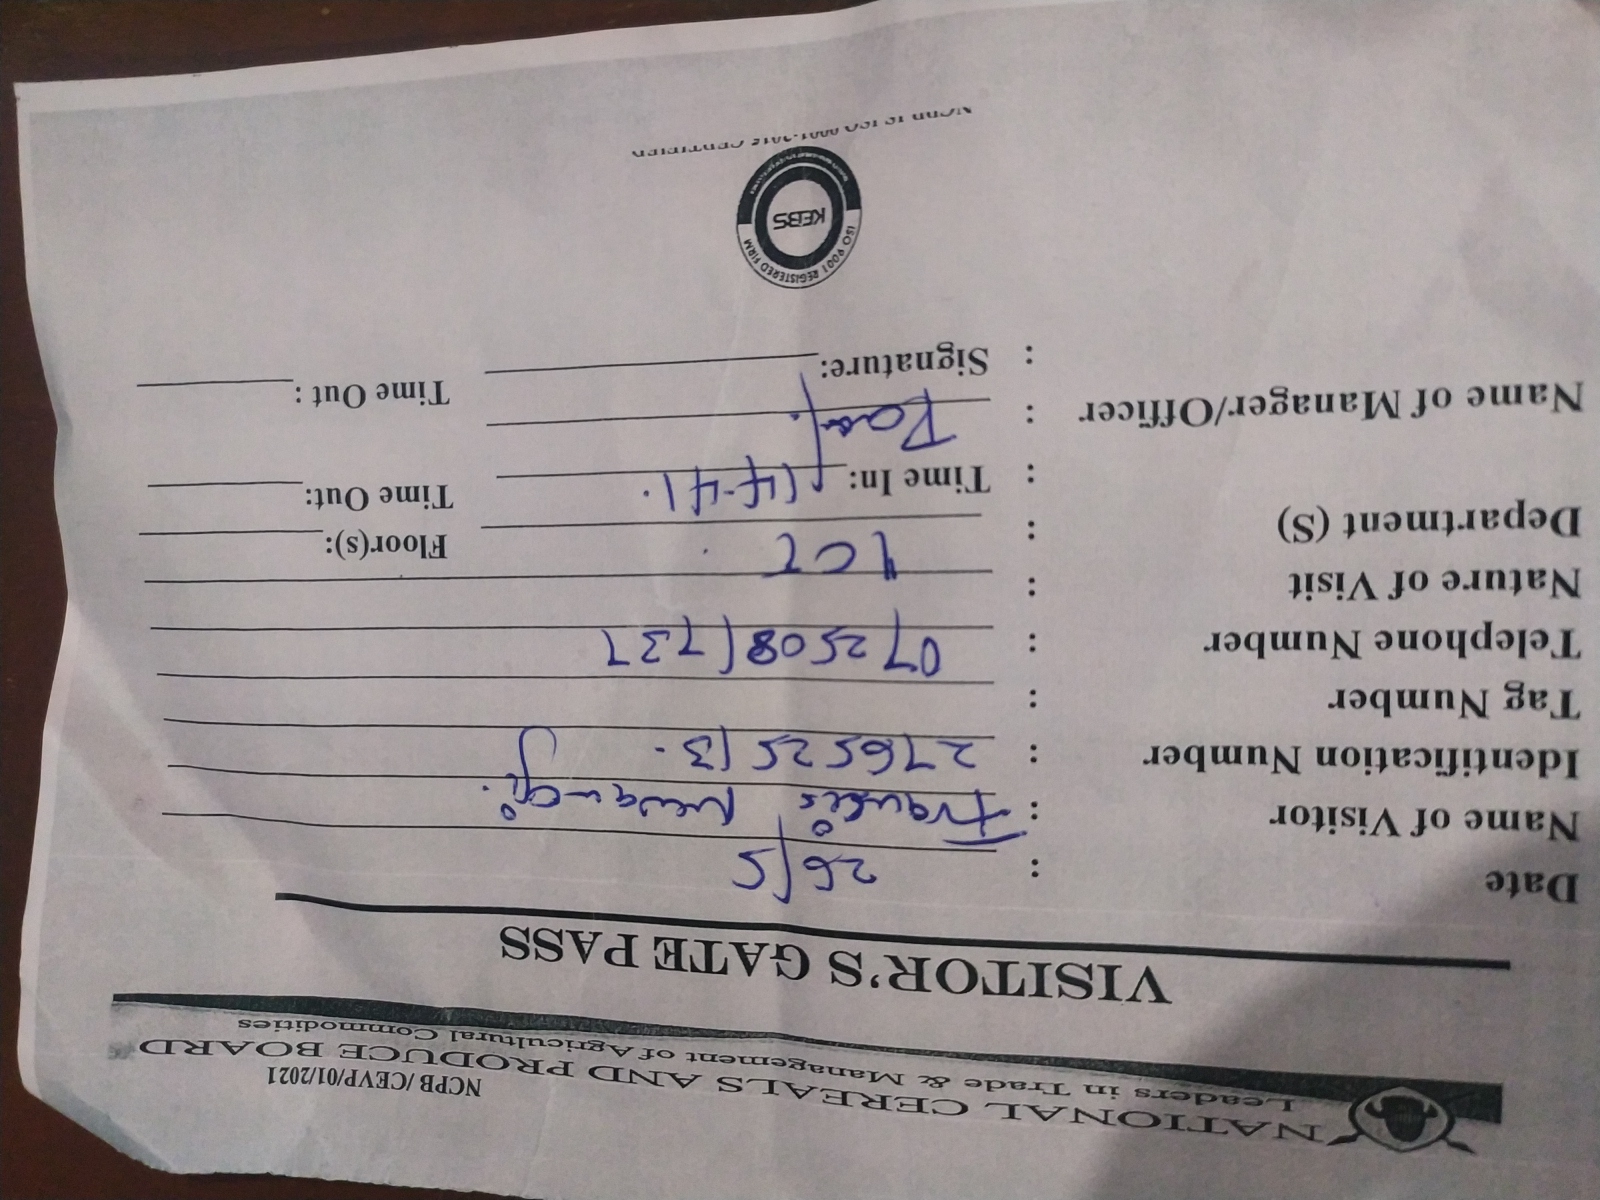 NCPB/CEVP/01/2021
NATIONAL CEREALS AND PRODUCE BOARD
Leaders in Trade & Management of Agricultural Commodities
VISITOR'S GATE PASS
Date : 26/5
Name of Visitor : Francis Mwangi.
Identification Number : 27652513.
Tag Number :
Telephone Number : 0725081737
Nature of Visit : ICT
Department (S) : Floor(s):
: Time In: 14-41. Time Out:
Name of Manager/Officer :
: Signature: Time Out :
ISO 9001 REGISTERED FIRM
KEBS
NCPB IS ISO 9001:2015 CERTIFIED